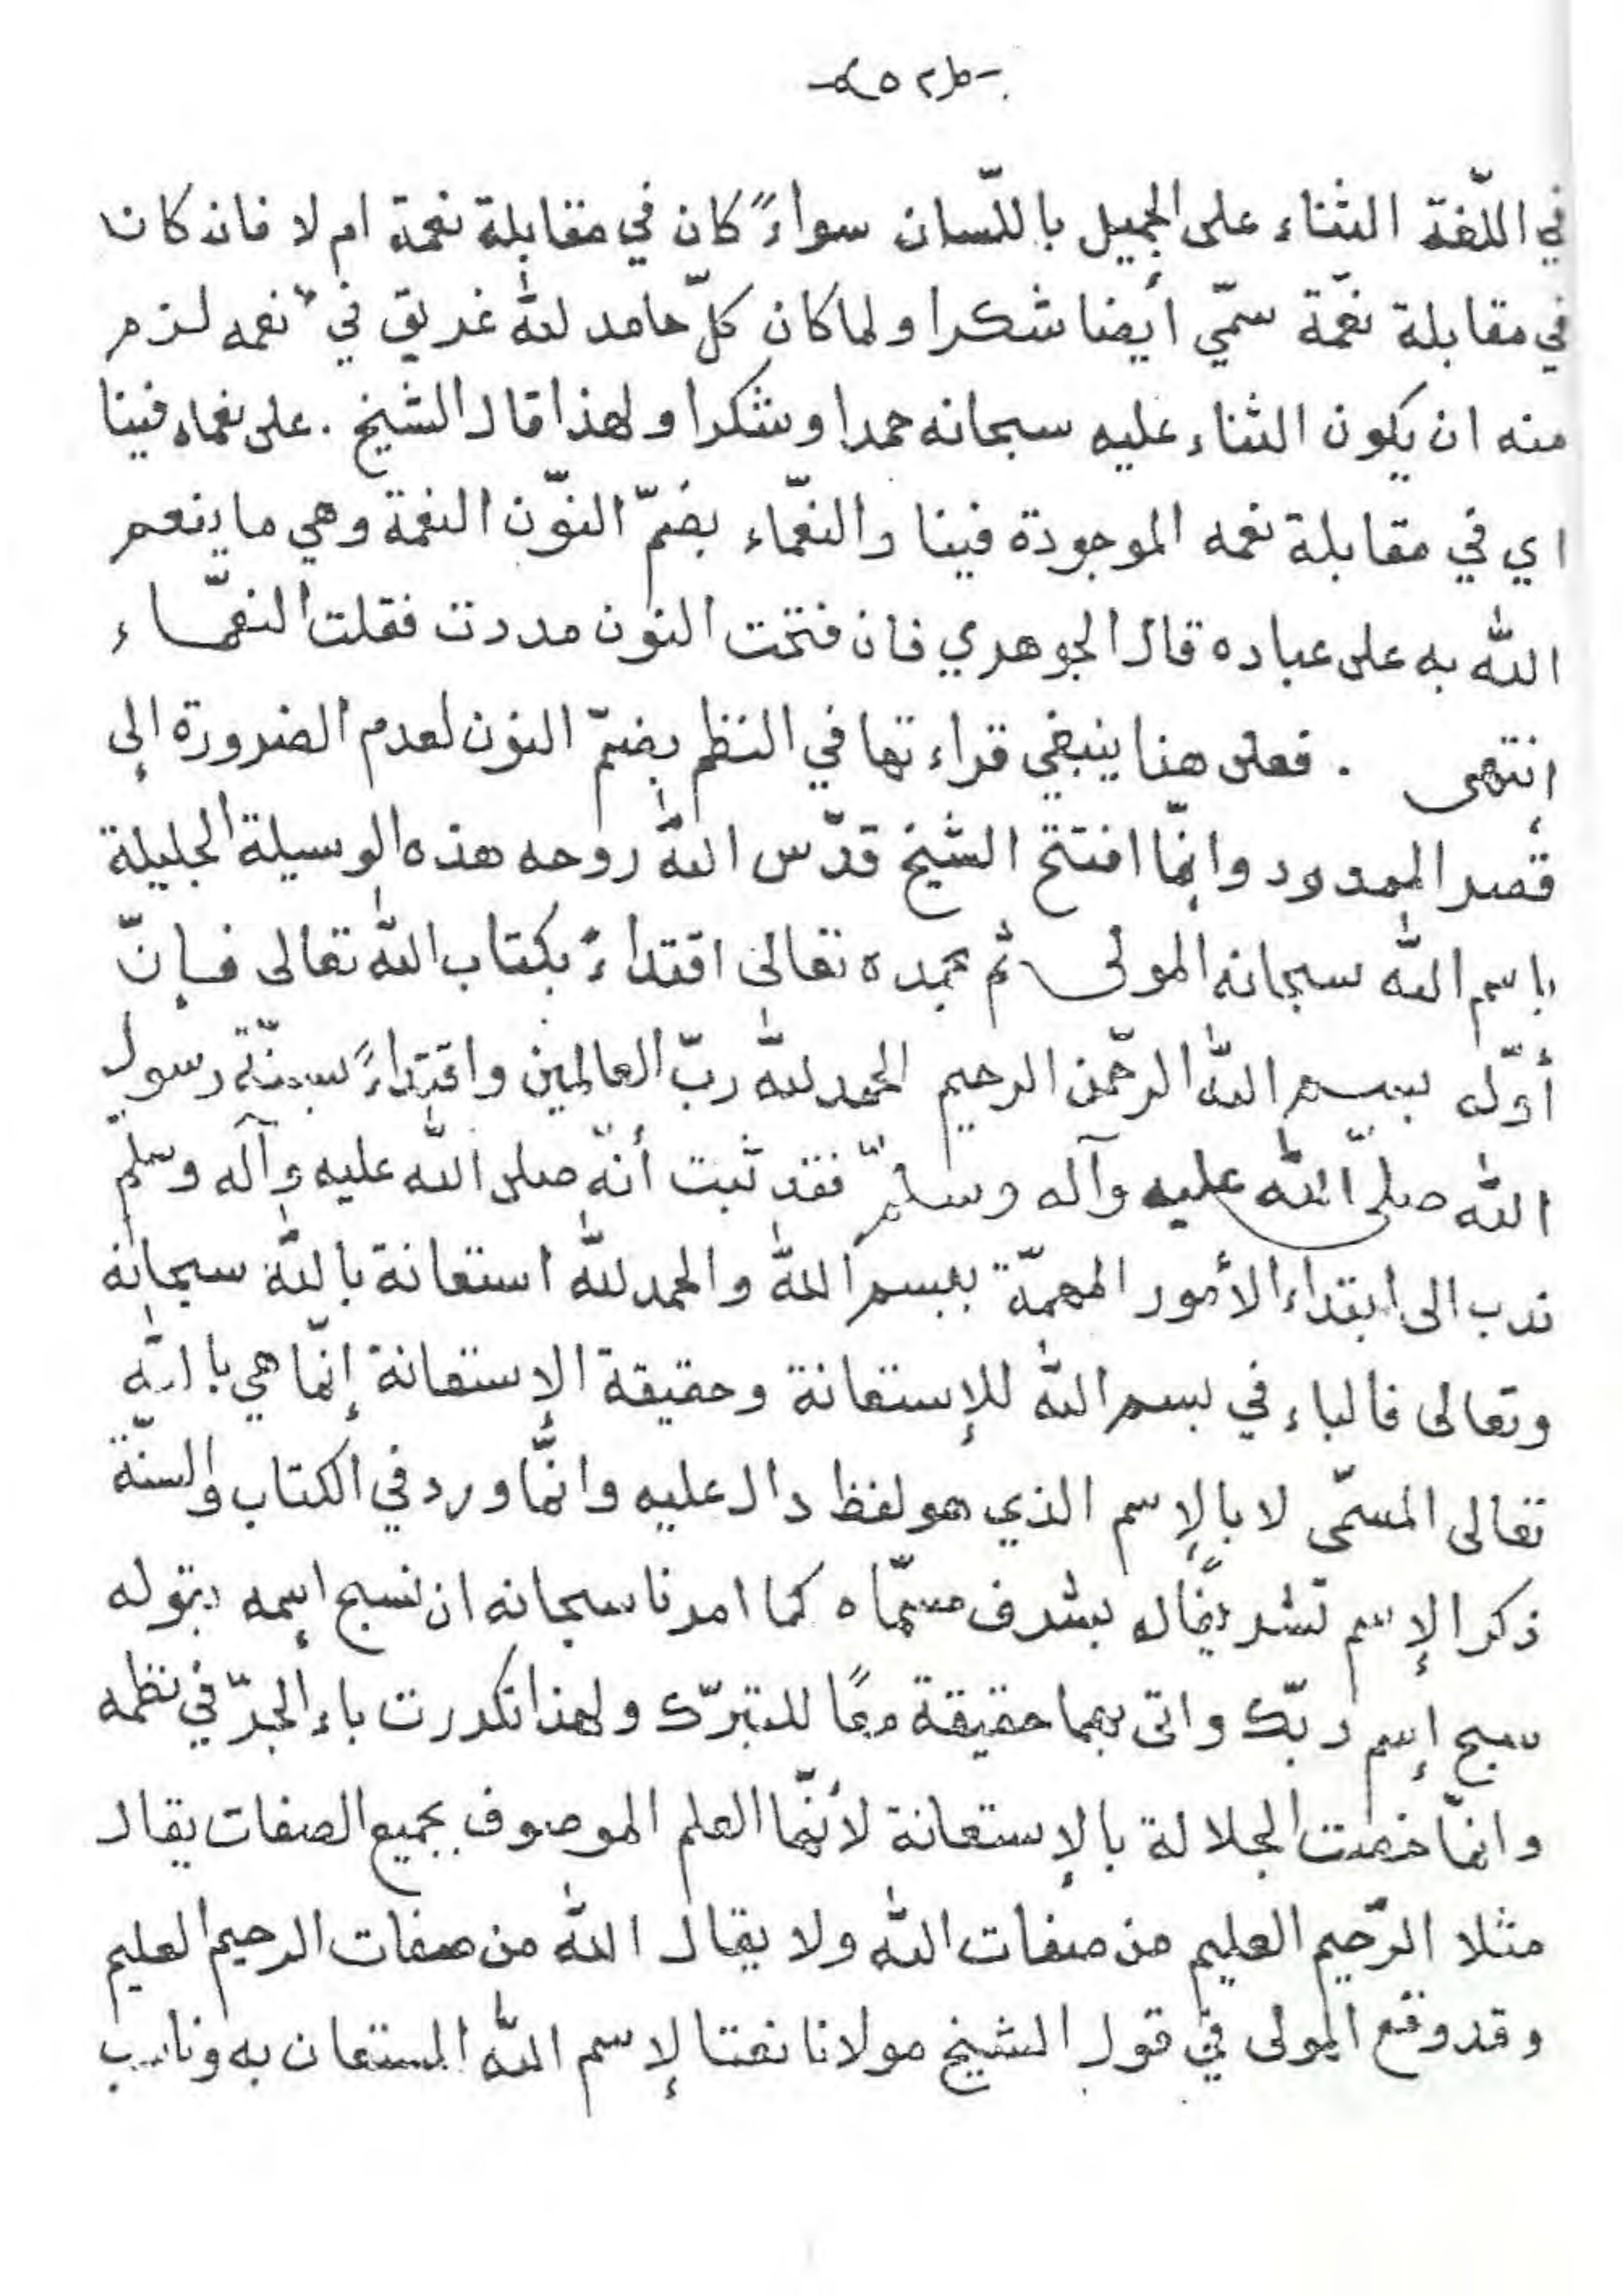 -٢٥-
في اللّغة الثناء على الجميل باللّسان سواءً كان في مقابلة نعمة ام لا فان كان
في مقابلة نعمة سمّي أيضا شكرا ولما كان كلّ حامد لله غريق في نعمه لزم
منه ان يكون الثناء عليه سبحانه حمدا وشكرا ولهذا قال الشيخ . على نعماه فينا
اي في مقابلة نعمه الموجودة فينا والنعماء بضمّ النّون النعمة وهي ما ينعم
الله به على عباده قال الجوهري فان فتحت النون مددت فقلت النعمّاء
إنتهى . فعلى هنا ينبغي قراءتها في النظم بضمّ النون لعدم الضرورة إلى
قصر الممدود وانّما افتتح الشيخ قدّس الله روحه هذه الوسيلة الجليلة
باسم الله سبحانه المولى ثم بحمده تعالى اقتداءً بكتاب الله تعالى فإنّ
أوّله بسم الله الرّحمن الرحيم الحمد لله ربّ العالمين واقتداءً بسنّة رسول
الله صلّى الله عليه وآله وسلّم فقد ثبت أنّه صلى الله عليه وآله وسلّم
ندب الى ابتداء الأمور المهمّة ببسم الله والحمد لله استعانة بالله سبحانه
وتعالى فالباء في بسم الله للإستعانة وحقيقة الإستعانة إنّما هي بالله
تعالى المسمّى لا بالإسم الذي هو لفظ دال عليه وانّما ورد في الكتاب والسنّة
ذكر الإسم تشريفًا له بشرف مسمّاه كما امرنا سبحانه ان نسبح إسمه بقوله
سبح إسم ربّك واتى بهما حقيقة معًا للتبرّك ولهذا تكررت باء الجرّ في نظمه
وانمّا خصت الجلالة بالإستعانة لأنّها العلم الموصوف بجميع الصفات يقال
مثلا الرّحيم العليم من صفات الله ولا يقال الله من صفات الرحيم العليم
وقد وقع المولى في قول الشيخ مولانا نعتا لإسم الله المستعان به وناسب